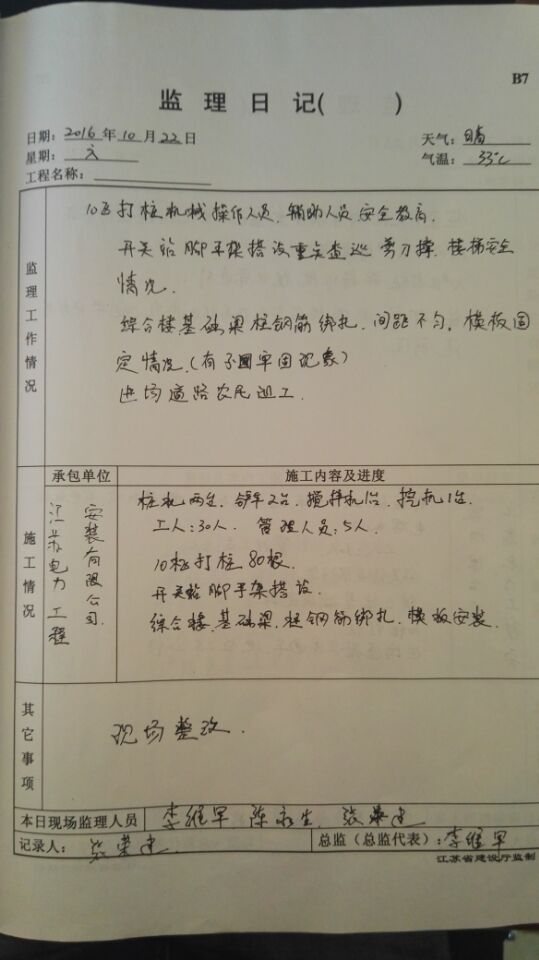 B7
监 理 日 记(        )
日期: 2016 年 10 月 22 日
天气: 晴
星期: 六
气温: 33℃
工程名称:
监理工作情况
打桩机械操作人员、辅助人员安全教育.
开关站脚手架搭设重点查巡 剪刀撑、楼梯安全
情况.
综合楼基础梁柱钢筋绑扎、间距不匀, 模板固
定情况.(有不牢固现象)
进场道路农民阻工.
施工情况
承包单位
施工内容及进度
江苏电力工程
安装有限公司
桩机两台、2台、搅拌机1台、挖机1台.
工人:30人. 管理人员:5人.
打桩 80根.
开关站脚手架搭设.
综合楼、基础梁、柱钢筋绑扎、模板安装.
其它事项
现场整改.
本日现场监理人员 李维军 陈永生、张荣建
记录人: 张荣建
总监(总监代表):李维军
江苏省建设厅监制